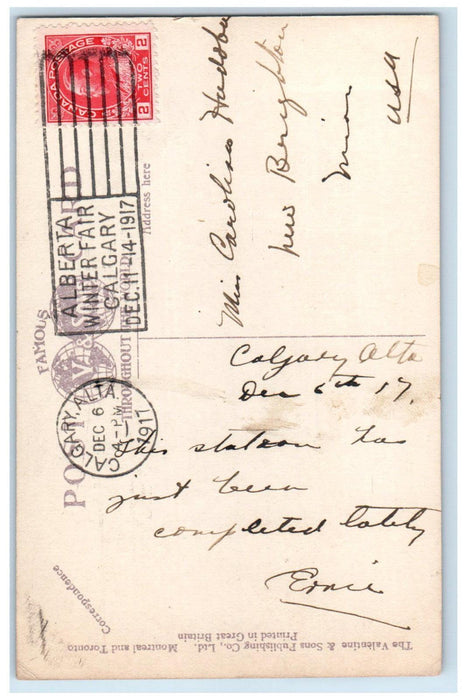 CANADA POSTAGE
2 TWO 2
CENTS
ALBERTA
WINTER FAIR
CALGARY
DEC. 11-14-1917
CALGARY, ALTA.
DEC 6
4-PM
1917
FAMOUS
THROUGHOUT THE WORLD
POST CARD
Address here
Miss Caroline
New Brighton
Minn
USA
Calgary Alta
Dec 6th 17.
This station has
just been
completed lately
Ernie
Correspondence
The Valentine & Sons Publishing Co., Ltd. Montreal and Toronto
Printed in Great Britain